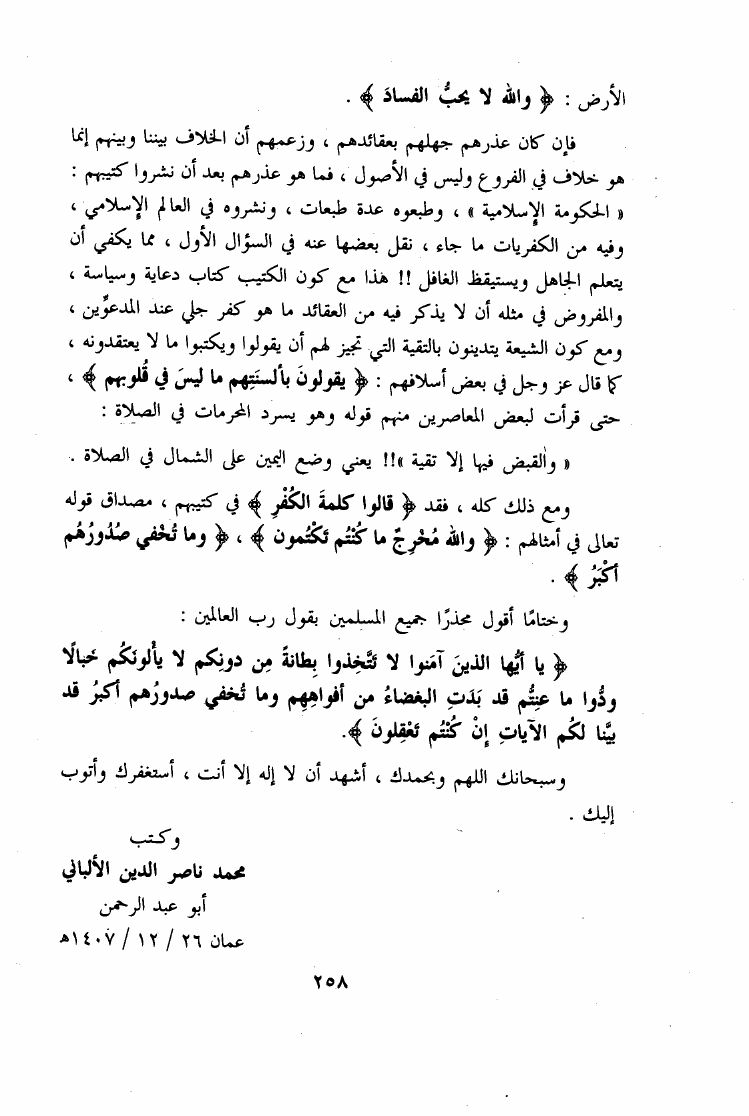 الأرض : ﴿ والله لا يحبُّ الفسادَ ﴾ .
فإن كان عذرهم جهلهم بعقائدهم ، وزعمهم أن الخلاف بيننا وبينهم إنما
هو خلاف في الفروع وليس في الأصول ، فما هو عذرهم بعد أن نشروا كتيبهم :
« الحكومة الإسلامية » ، وطبعوه عدة طبعات ، ونشروه في العالم الإسلامي ،
وفيه من الكفريات ما جاء ، نقل بعضها عنه في السؤال الأول ، مما يكفي أن
يتعلم الجاهل ويستيقظ الغافل !! هذا مع كون الكتيب كتاب دعاية وسياسة ،
والمفروض في مثله أن لا يذكر فيه من العقائد ما هو كفر جلي عند المدعوِّين ،
ومع كون الشيعة يتدينون بالتقية التي تجيز لهم أن يقولوا ويكتبوا ما لا يعتقدونه ،
كما قال عز وجل في بعض أسلافهم : ﴿ يقولونَ بألسنَتِهم ما ليسَ في قُلوبهم ﴾ ،
حتى قرأت لبعض المعاصرين منهم قوله وهو يسرد المحرمات في الصلاة :
« والقبض فيها إلا تقية »!! يعني وضع اليمين على الشمال في الصلاة .
ومع ذلك كله ، فقد ﴿ قالوا كلمةَ الكُفْرِ ﴾ في كتيبهم ، مصداق قوله
تعالى في أمثالهم : ﴿ والله مُخْرِجٌ ما كُنْتُم تَكْتُمون ﴾ ، ﴿ وما تُخْفي صُدُورُهُم
أكْبَرُ ﴾ .
وختامًا أقول محذرًا جميع المسلمين بقول رب العالمين :
﴿ يا أيُّها الذينَ آمَنوا لا تَتَّخِذوا بِطانةً مِن دونِكم لا يألونَكُم خَبالًا
ودُّوا ما عَنِتُّم قد بَدَتِ البغضاءُ من أفواهِهِم وما تُخفي صدورُهم أكبرُ قد
بيَّنا لكُم الآياتِ إنْ كُنْتُم تَعْقِلونَ ﴾.
وسبحانك اللهم وبحمدك ، أشهد أن لا إله إلا أنت ، أستغفرك وأتوب
إليك .
وكتب
محمد ناصر الدين الألباني
أبو عبد الرحمن
عمان ٢٦ / ١٢ / ١٤٠٧هـ
٢٥٨